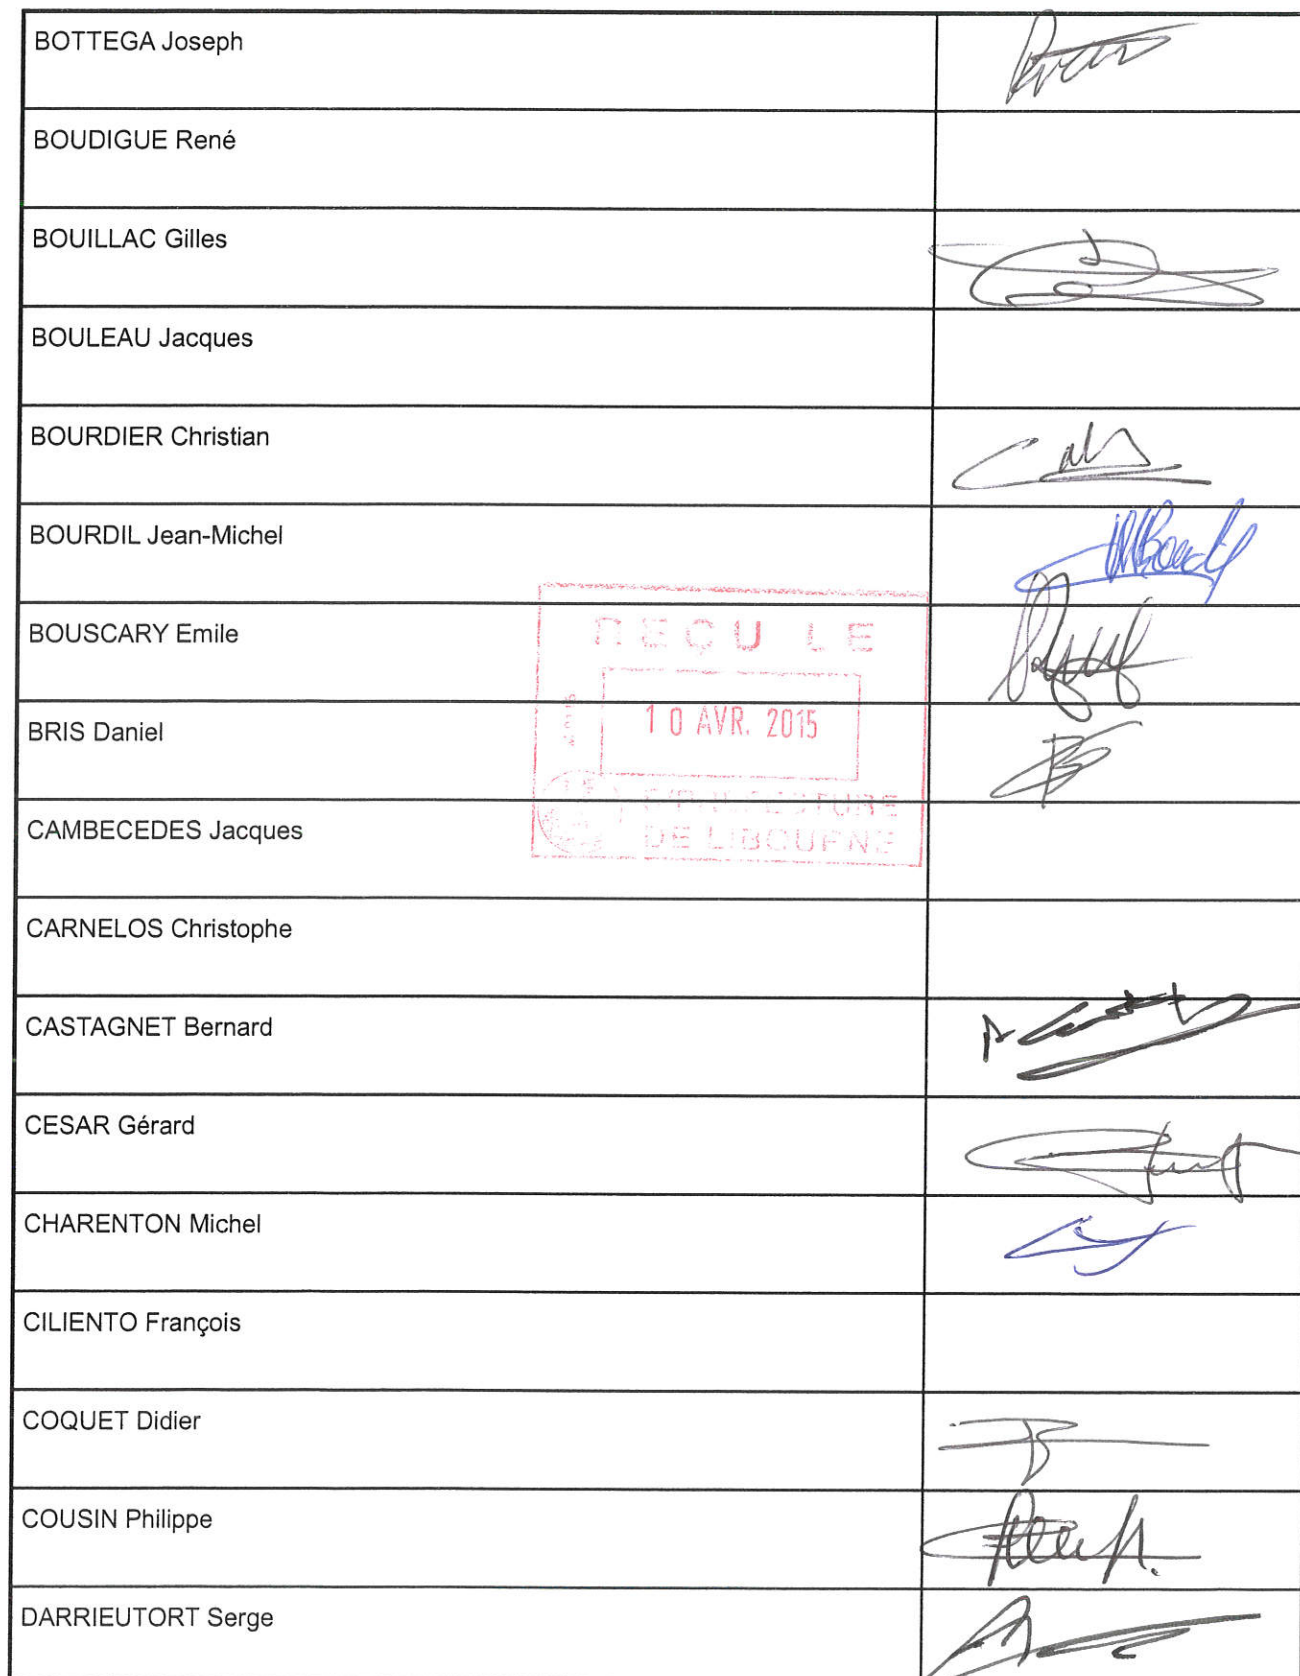 BOTTEGA Joseph
BOUDIGUE René
BOUILLAC Gilles
BOULEAU Jacques
BOURDIER Christian
BOURDIL Jean-Michel
BOUSCARY Emile
REÇU LE
BRIS Daniel
10 AVR. 2015
CAMBECEDES Jacques
DE LIBOURNE
CARNELOS Christophe
CASTAGNET Bernard
CESAR Gérard
CHARENTON Michel
CILIENTO François
COQUET Didier
COUSIN Philippe
DARRIEUTORT Serge